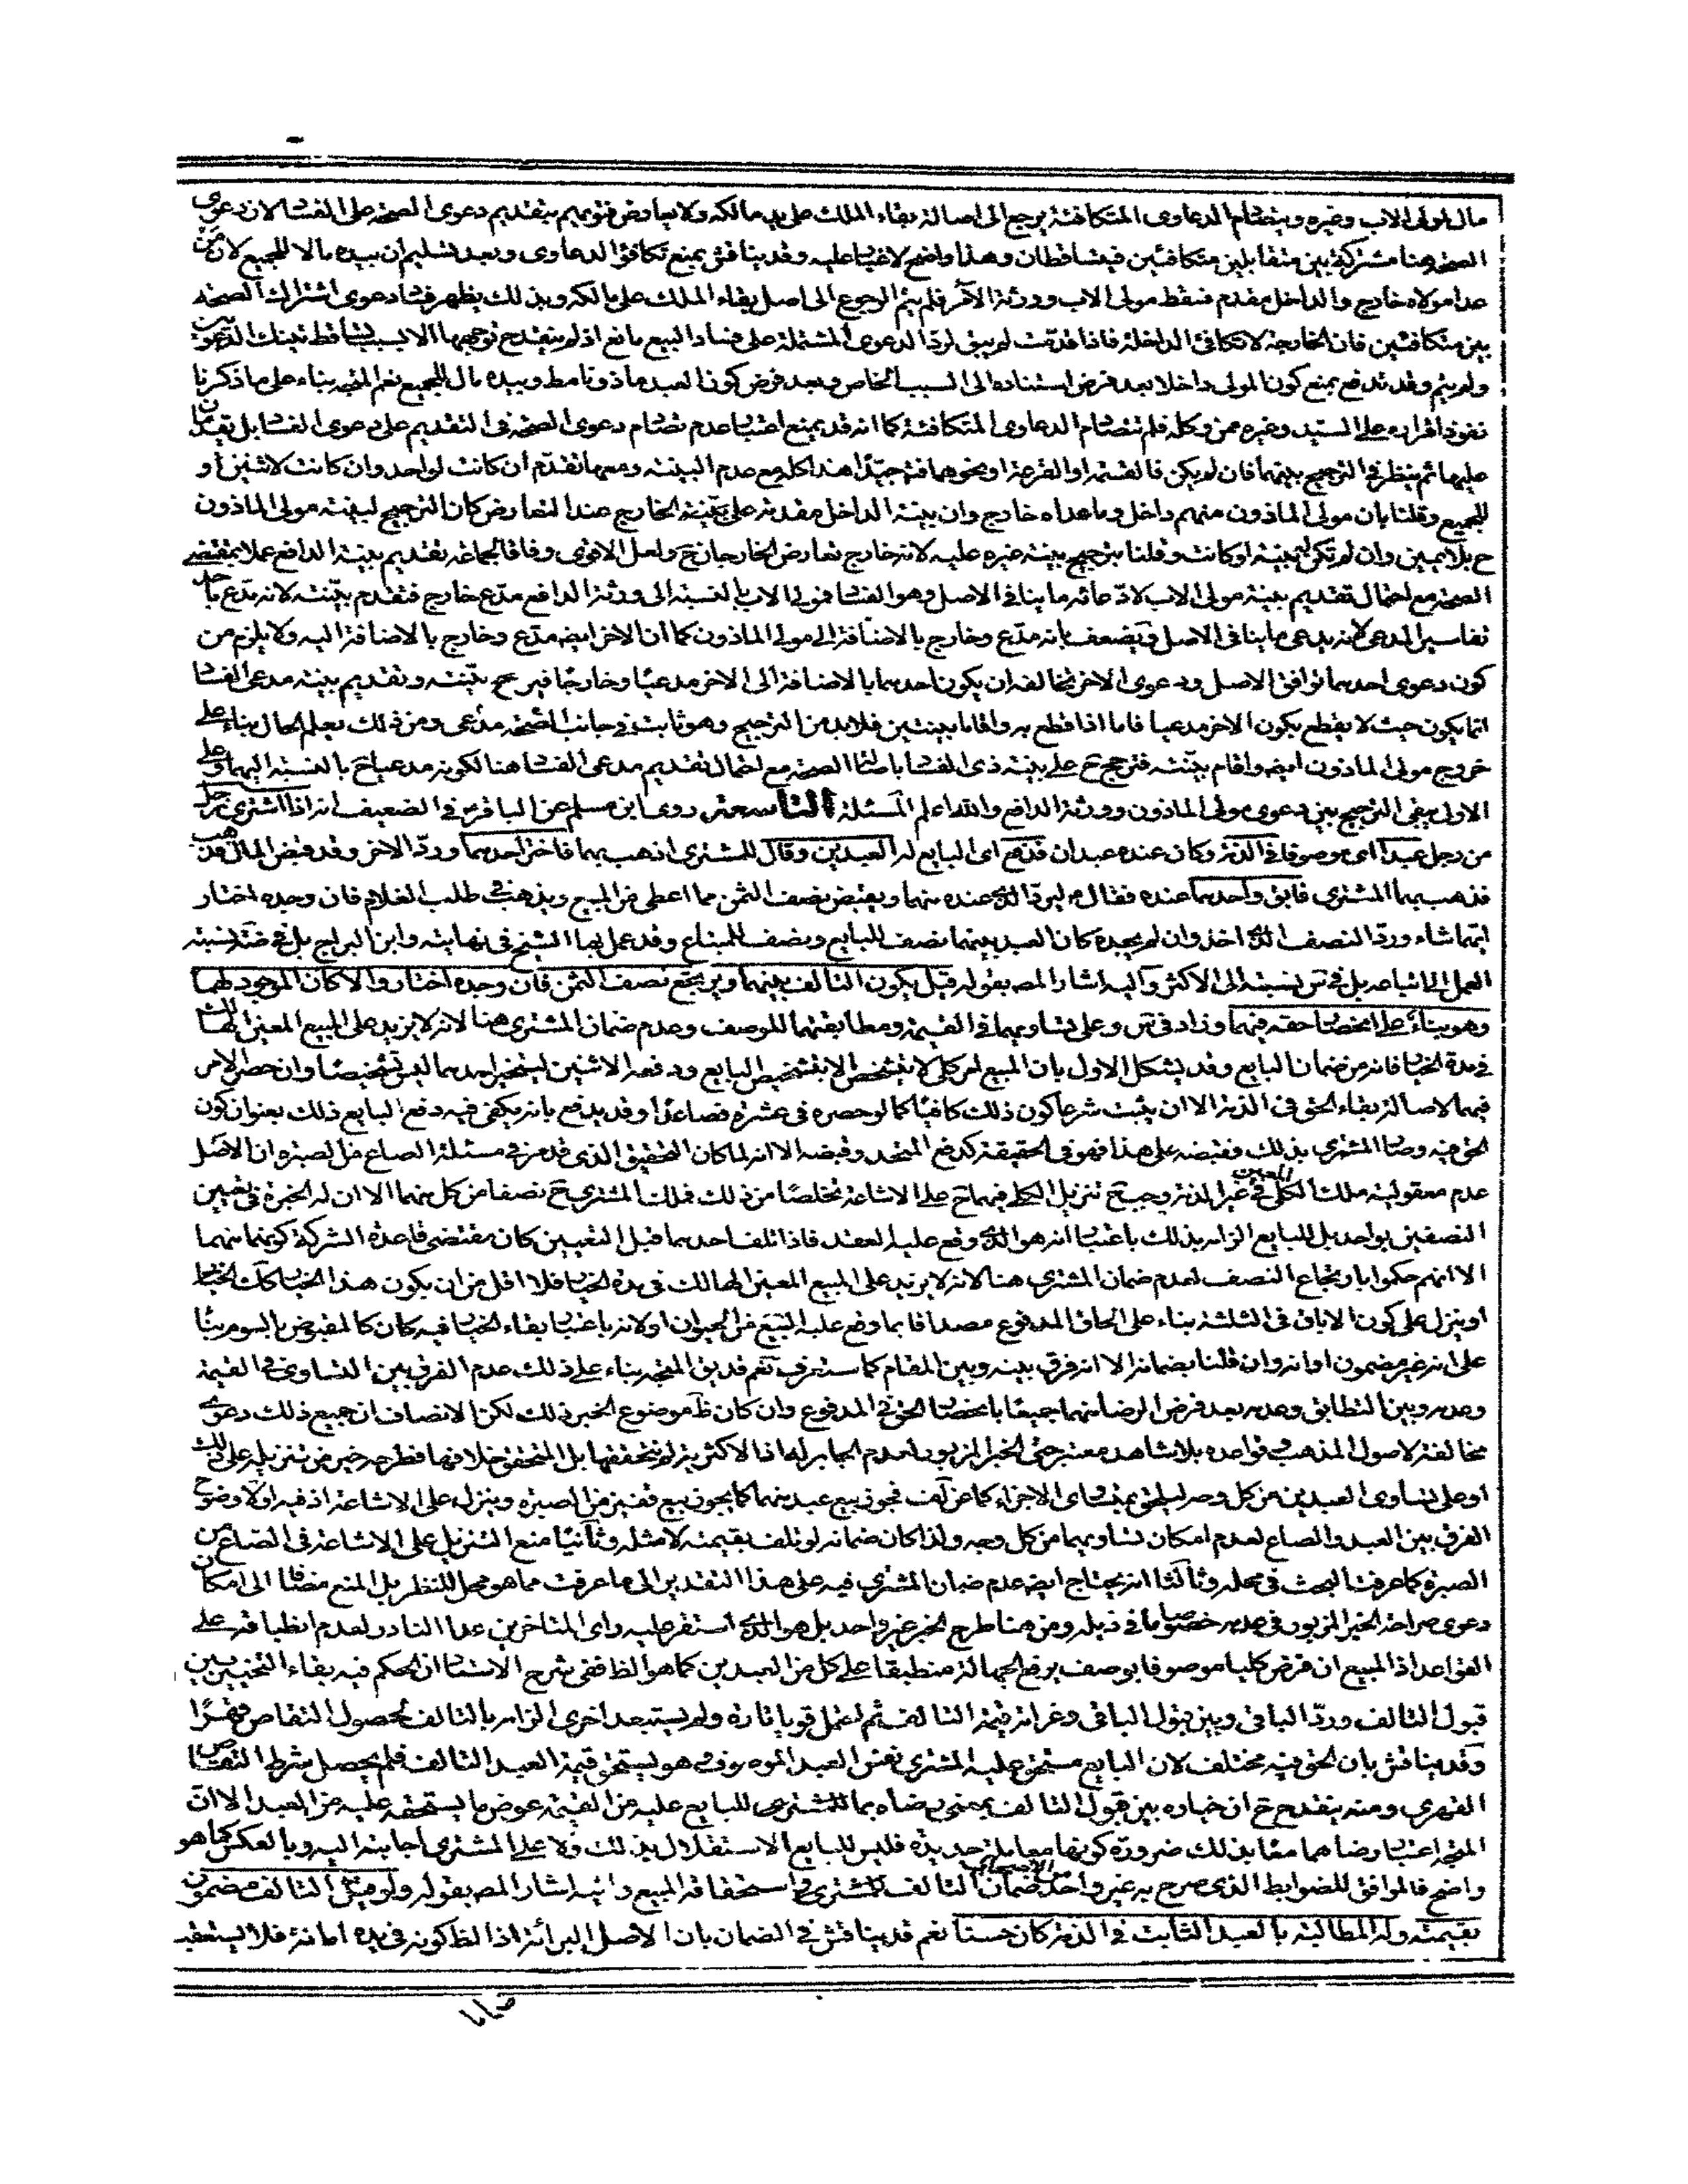 مال لمولى الاب وغيره وبتصادم الدعاوى المتكافئة يرجع الى اصالة بقاء الملك على يد مالكه ولا يعارض قولهم بتقديم دعوى الصحة على الفساد لان دعوى
الصحة هنا مشتركة بين متقابلين متكافئين فيتساقطان وهذا واضح لا غبار عليه وقد يناقش بمنع تكافؤ الدعاوى وبعد تسليم ان بيده مالا للجميع لان من
عدا مولاه خارج والداخل مقدم فسقط مولى الاب وورثة الآمر فلم يتم الرجوع الى اصل بقاء الملك على مالكه وبذلك يظهر فساد دعوى اشتراك الصحة
بين متكافئين فان الخارجة لا تكافئ الداخلة فاذا قدمت لم يبق لرد الدعوى المشتملة على فساد البيع مانع اذ لم ينقدح توجهها الا بسبب تساقط تينك الدعويين
ولم يتم وقد تدفع بمنع كون المولى داخلا بعد فرض استناده الى السبب الخاص وبعد فرض كون العبد ماذونا مط وبيده مال للجميع نعم المتجه بناء على ما ذكرنا
نفوذ اقراره على السيد وغيره ممن وكله فلم تتصادم الدعاوى المتكافئة كما انه قد يمنع اعتبار عدم تصادم دعوى الصحة في التقديم على دعوى الفساد بل يقدمان
عليها ثم ينظر في الترجيح بينهما فان لم يكن فالقسمة او القرعة او نحوهما فتد جيدا هذا كله مع عدم البينة ومعها تقدم ان كانت لواحد وان كانت لاثنين او
للجميع وقلنا بان مولى الماذون منهم داخل وما عداه خارج وان بينة الداخل مقدمة على بينة الخارج عند التعارض كان الترجيح لبينة مولى الماذون
ح بلا يمين وان لم تكن له بينة او كانت وقلنا بترجيح بينة غيره عليه لانه خارج تعارض الخارجان ح ولعل الاقوى وفاقا لجماعة تقديم بينة الدافع عملا بمقتضى
الصحة مع احتمال تقديم بينة مولى الاب لادعائه ما ينافي الاصل وهو الفساد فمولى الاب بالنسبة الى ورثة الدافع مدع خارج فتقدم بينته لانه مدع باحد
تفاسير المدعى لانه يدعي ما ينافي الاصل ويضعف بانه مدع وخارج بالاضافة الى مولى الماذون كما ان الاخر ايضا مدع وخارج بالاضافة اليه ولا يلزم من
كون دعوى احدهما توافق الاصل ودعوى الاخر تخالفه ان يكون احدهما بالاضافة الى الاخر مدعيا وخارجا فيرجح بينته وتقديم بينة مدعى الفساد
انما يكون حيث لا يقطع بكون الاخر مدعيا فاما اذا قطع به واقاما بينتين فلا بد من الترجيح وهو ثابت في جانب الصحة مدعى ومن ذلك يعلم الحال بناء على
خروج مولى الماذون ايضا واقام بينته فترجح ح على بينة ذى الفساد باصالة الصحة مع احتمال تقديم مدعى الفساد هنا لكونه مدعيا ح بالنسبة اليهما وعلى
الاول يبقى الترجيح بين دعوى مولى الماذون وورثة الدافع والله اعلم المسئلة التاسعة روى ابن مسلم عن الباقر في الضعيف انه اذا اشترى رجل
من رجل عبدا اى موصوفا في الذمة وكان عنده عبدان فدفع اى البايع له العبدين وقال للمشتري اذهب بهما فاختر احدهما ورد الاخر وقد قبض المال فذهب
فذهب بهما المشترى فابق واحدهما عنده فقال م ليرد الذي عنده منهما ويقبض نصف الثمن مما اعطى من المبيع ويذهب في طلب الغلام فان وجده اختار
ايهما شاء ورد النصف الذي اخذ وان لم يجده كان العبد بينهما نصف للبايع ونصف للمبتاع وقد عمل بها الشيخ في نهايته وابن البراج بل في ضة نسبة
العمل الى اتباعه بل في س نسبته الى الاكثر واليه اشار المص بقوله قيل يكون التالف بينهما ويرتجع نصف الثمن فان وجده اختار والا كان الموجود لهما
وهو بناء على انحصار حقه فيهما وزاد في س وعلى تساويهما في القيمة ومطابقتهما للوصف وعدم ضمان المشترى هنا لانه لا يزيد على المبيع المعين الهالك
في مدة الخيار فانه من ضمان البايع وقد يشكل الاول بان المبيع امر كلي لا يتشخص الا بتشخيص البايع ودفعه الاثنين ليتخير احدهما ليس تشخيصا وان حصر الامر
فيهما لاصالة بقاء الحق في الذمة الا ان يثبت شرعا كون ذلك كافيا كما لو حصره في عشرة فصاعدا وقد يدفع بانه يكفي فيه دفع البايع ذلك بعنوان كون
الحق فيه ورضا المشتري بذلك وقبضه على هذا فهو في الحقيقة كدفع المتحد وقبضه الا انه لما كان التحقيق الذي قد مر في مسئلة الصاع من الصبرة ان الاصل
عدم معقولية ملك الكلي في غير الذمة وجب ح تنزيل الكلي فيهما ح على الاشاعة تخلصا من ذلك فملك المشترى ح نصفا من كل منهما الا ان له الخيرة في تعيين
النصفين بواحد بل للبايع الزامه بذلك باعتبار انه هو الذي وقع عليه العقد فاذا تلف احدهما قبل التعيين كان مقتضى قاعدة الشركة كونه منهما
الا انهم حكموا بارتجاع النصف لعدم ضمان المشتري هنا لانه لا يزيد على المبيع المعين الهالك في مدة الخيار فلا اقل من ان يكون هذا الخيار كذلك الخيار
او ينزل على كون الاباق في الثلثة بناء على الحاق المدفوع مصداقا بما وقع عليه البيع من الحيوان او لانه باعتبار بقاء الخيار فيه كان كالمقبوض بالسوم بناء
على انه غير مضمون او انه وان قلنا بضمانه الا انه فرق بينه وبين المقام كما ستعرف نعم قد يق المتجه بناء على ذلك عدم الفرق بين التساوي في القيمة
وعدمه وبين التطابق وعدمه بعد فرض الرضا منهما جميعا بانحصار الحق في المدفوع وان كان ظ موضوع الخبر ذلك لكن الانصاف ان جميع ذلك دعوى
مخالفة لاصول المذهب وقواعده بلا شاهد معتبر حتى الخبر المزبور لعدم الجابر له اذ الاكثرية لم نتحققها بل المتحقق خلافها فطرحه خير من تنزيله على ذلك
او على تساوي العبدين من كل وجه ليلحق بمتساوي الاجزاء كما عن لف فجوز بيع عبد منهما كما يجوز بيع قفيز من الصبرة وينزله على الاشاعة اذ فيه اولا وضوح
الفرق بين العبد والصاع لعدم امكان تساويهما من كل وجه ولذا كان ضمانه لو تلف بقيمته لا مثله وثانيا منع التنزيل على الاشاعة في الصاع من
الصبرة كما عرفت البحث في محله وثالثا انه يحتاج ايضا عدم ضمان المشترى فيه على هذا التقدير الى ما عرفت مما هو محل للنظر بل المنع مضافا الى امكان
دعوى صراحة الخبر المزبور في عدمه خصوصا ما في ذيله ومن هنا طرح الخبر غير واحد بل هو الذي استقر عليه راى المتاخرين عدا النادر لعدم انطباقه على
القواعد اذ المبيع ان فرض كليا موصوفا بوصف يرفع الجهالة منطبقا على كل من العبدين كما هو الظ ففي شرح الاستاد ان الحكم فيه بقاء التخيير بين
قبول التالف ورد الباقي وبين قبول الباقي وغرامة قيمة التالف ثم احتمل قويا تارة ولم يستبعد اخرى الزامه بالتالف لحصول التقاص قهرا
وقد يناقش بان الحق فيه مختلف لان البايع مستحق عليه المشترى نفس العبد الموصوف وهو يستحق قيمة العبد التالف فلم يحصل شرط التقاص
القهري ومنه ينقدح ح ان خياره بين قبول التالف بمعنى رضاه بما للمشتري للبايع عليه من القيمة عوض ما يستحقه عليه من العبد الا ان
المتجه اعتبار رضاهما معا بذلك ضرورة كونها معاملة جديدة فليس للبايع الاستقلال بذلك ولا على المشترى اجابته اليه وبالعكس كما هو
واضح فالموافق للضوابط الذي صرح به غير واحد من الاصحاب ضمان التالف للمشترى واستحقاقه المبيع واليه اشار المص بقوله ولو قيل التالف مضمون
بقيمته وله المطالبة بالعبد الثابت في الذمة كان حسنا نعم قد يناقش في الضمان بان الاصل البرائة اذ الظ كونه في يده امانة فلا يستعقب